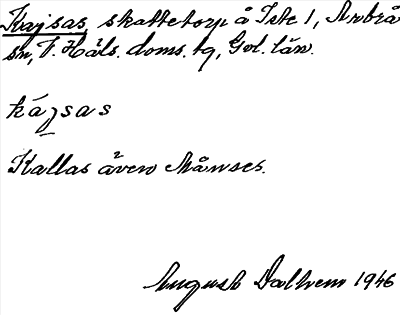 Kajsas, skattetorp å Iste 1, Arbrå
sn, V. Häls. doms. tg, Gvl. län.
kájsas
Kallas även Månses.
August Dalhem 1946